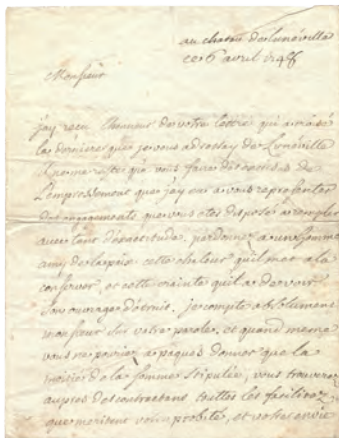 au chateau de luneville
ce 6 avril 1748
Monsieur
j'ay reçu l'honneur de votre lettre qui a croisé
la derniere que je vous adressay de Lunéville
il ne me reste qu'a vous faire des excuses de
l'empressement que j'ay eu a vous representer
des engagements que vous etes disposé a remplir
avec tant d'exactitude. pardonez a un homme
amy de la paix cette chaleur qu'il met a la
conserver, et cette crainte qu'il a de voir
son ouvrage détruit. je compte absolument
monsieur sur votre parole, et quand meme
vous ne pouriez a paques donner que la
moitié de la somme stipulée, vous trouverez
aupres des contractans toutes les facilitez
que meritent votre probité, et votre envie